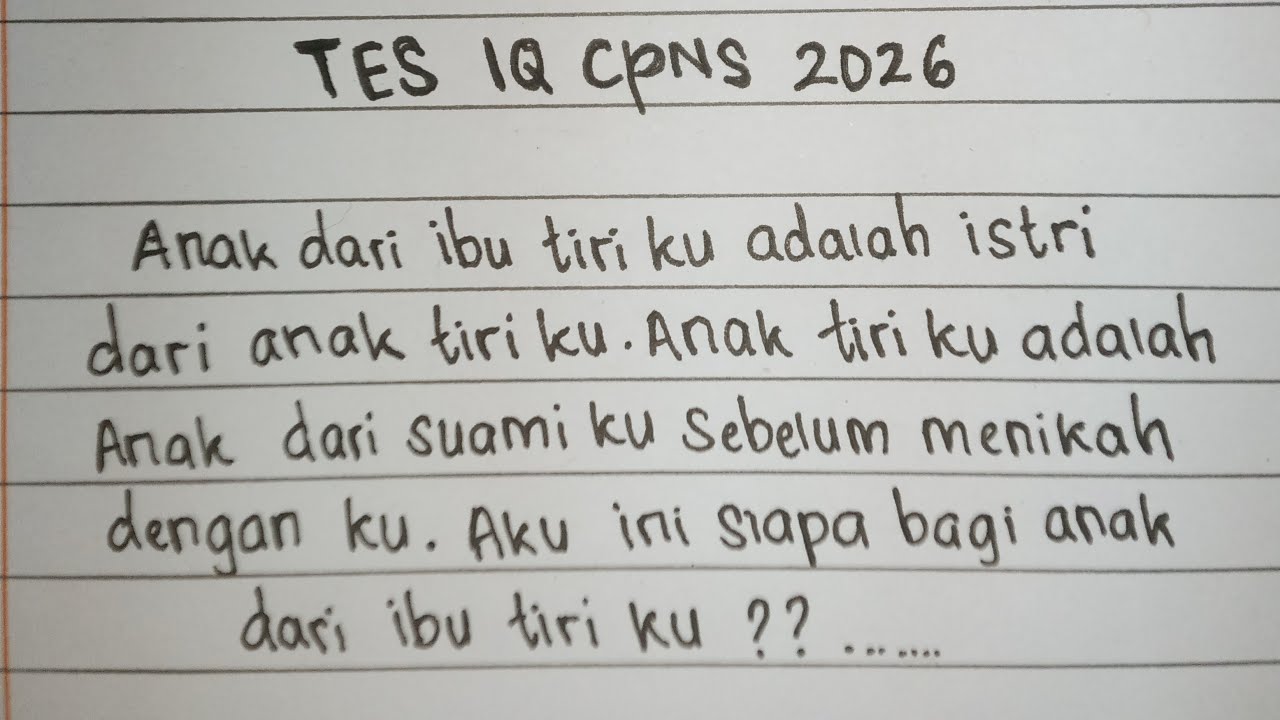 TES IQ CPNS 2026
Anak dari ibu tiri ku adalah istri
dari anak tiri ku. Anak tiri ku adalah
Anak dari suami ku sebelum menikah
dengan ku. Aku ini siapa bagi anak
dari ibu tiri ku ?? .......